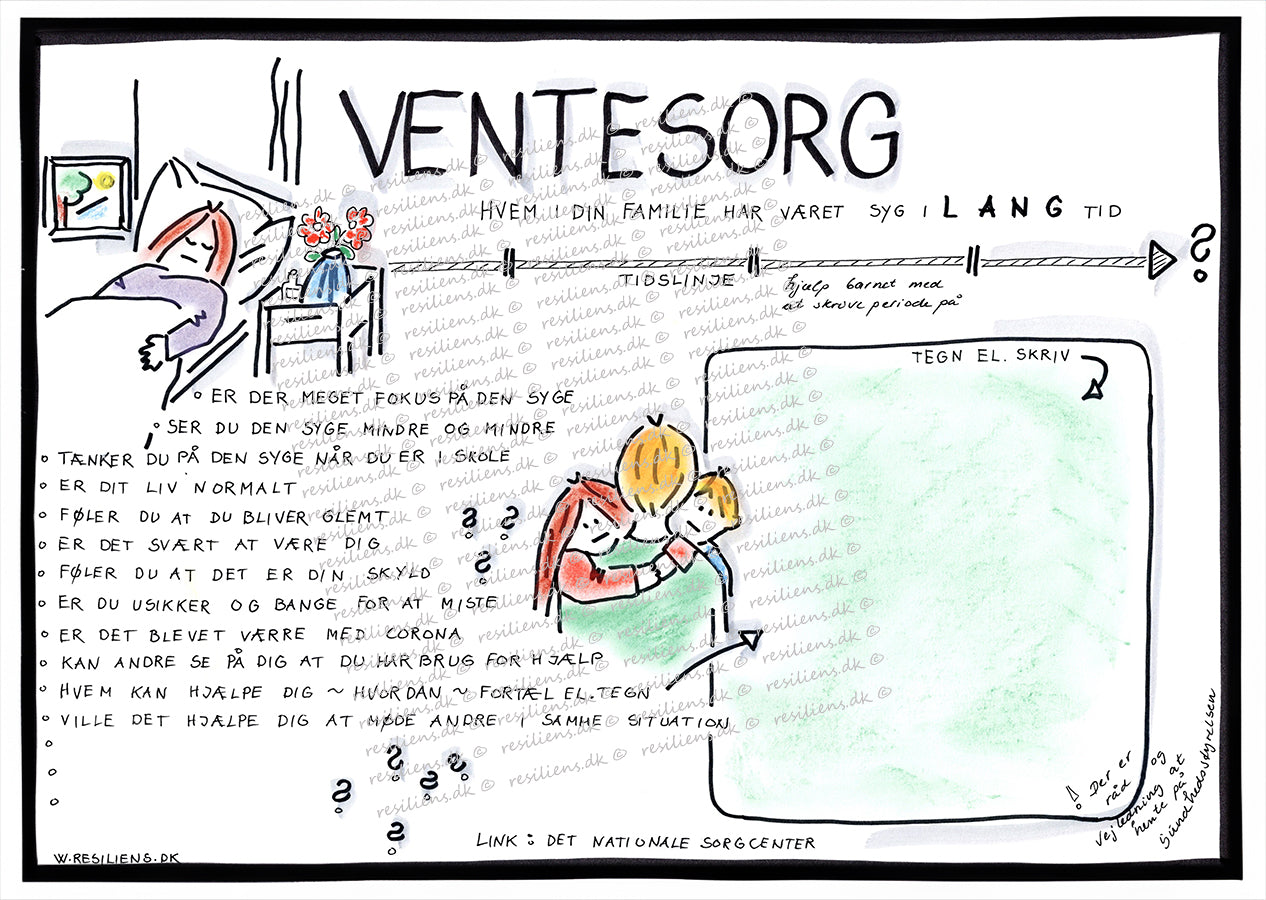 VENTESORG
HVEM I DIN FAMILIE HAR VÆRET SYG I LANG TID
?
TIDSLINJE
hjælp barnet med
at skrive periode på
TEGN EL. SKRIV
° ER DER MEGET FOKUS PÅ DEN SYGE
° SER DU DEN SYGE MINDRE OG MINDRE
° TÆNKER DU PÅ DEN SYGE NÅR DU ER I SKOLE
° ER DIT LIV NORMALT
° FØLER DU AT DU BLIVER GLEMT
° ER DET SVÆRT AT VÆRE DIG
° FØLER DU AT DET ER DIN SKYLD
° ER DU USIKKER OG BANGE FOR AT MISTE
° ER DET BLEVET VÆRRE MED CORONA
° KAN ANDRE SE PÅ DIG AT DU HAR BRUG FOR HJÆLP
° HVEM KAN HJÆLPE DIG ~ HVORDAN ~ FORTÆL EL. TEGN
° VILLE DET HJÆLPE DIG AT MØDE ANDRE I SAMME SITUATION
! Der er
råd og
vejledning at
hente på
Sundhedsstyrelsen
LINK : DET NATIONALE SORGCENTER
W.RESILIENS.DK
resiliens.dk ©